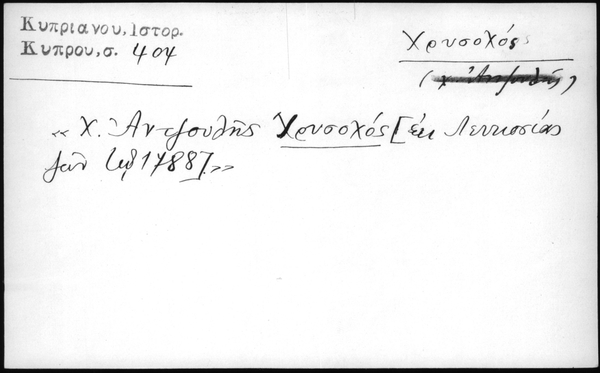 Κυπριανου, Ιστορ.
Κυπρου, σ. 404
Χρυσοχός
« Χ. Ἀντζουλῆς Χρυσοχός [ἐκ Λευκοσίας
1788]. »